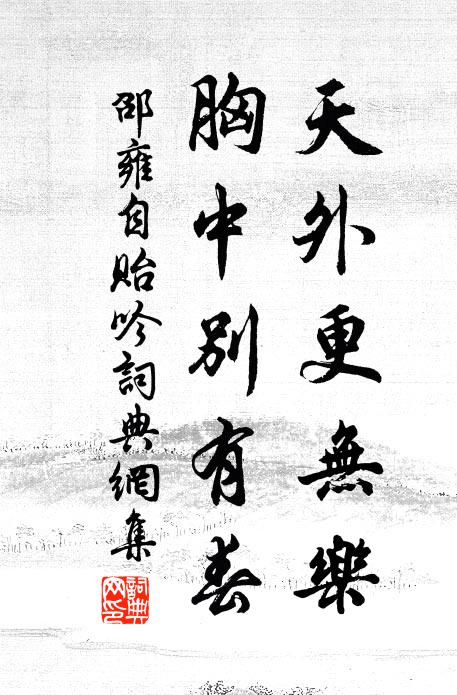 天外更無樂
胸中別有春
邵雍自貽吟詞典網集
詞典網印